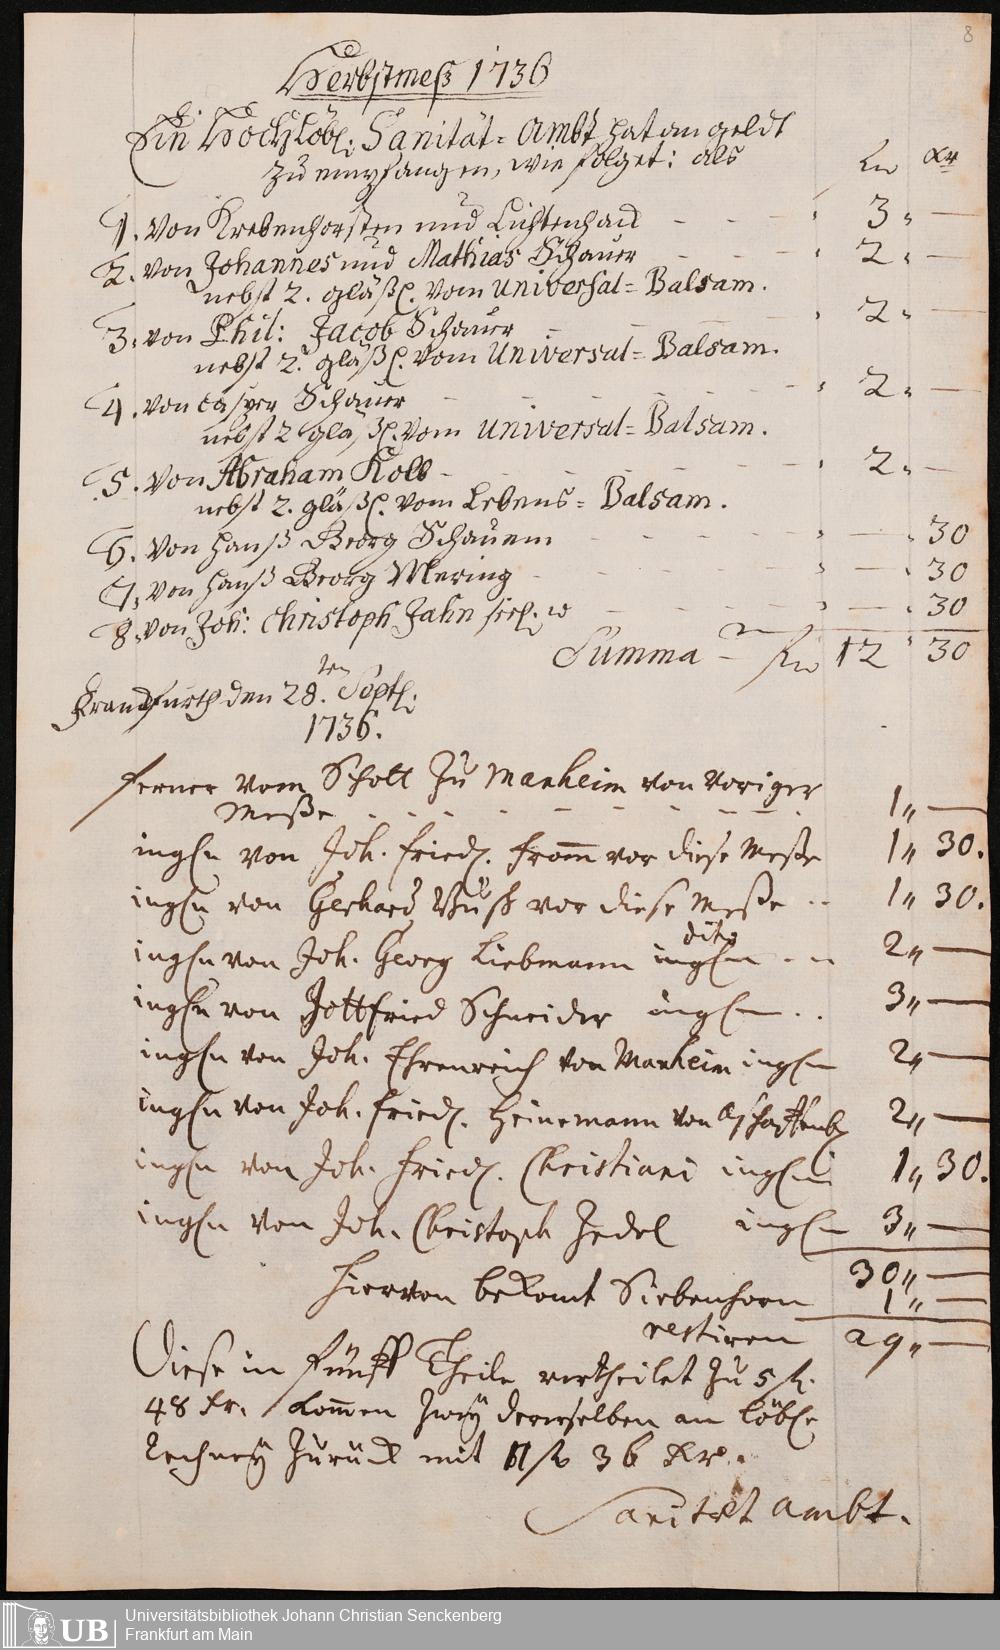 8
Herbstmeß 1736
Ein Hochlöbl: Sanität= Ambt hat an geldt
zu empfangen, wie folget: als
fl xr
1. von Krebenhorsten und Lichtenhan - - - 3 „ —
2. von Johannes und Mathias Schauer - - - 2 „ —
nebst 2. gläßl. vom Universal= Balsam.
3. von Phil: Jacob Schauer - - - 2 „ —
nebst 2. gläßl. vom Universal= Balsam.
4. von Casper Schauer - - - 2 „ —
nebst 2 gläßl. vom Universal= Balsam.
5. von Abraham Kolb - - - 2 „ —
nebst 2. gläßl. vom Lebens= Balsam.
6. von Hanß Georg Schauern - - - — „ 30
7. von Hanß Georg Mering - - - — „ 30
8. von Joh: Christoph Jahn - - - — „ 30
Summa — fl 12 „ 30
Franckfurth den 28.ten Sept:
1736.
ferner vom Schott zu Manheim von voriger
Meße - - - 1 „ —
ingln von Joh. Fried. Fromm vor diese Meße 1 „ 30.
ingln von Gerhard Buß vor diese Meße .. 1 „ 30.
dito
ingln von Joh. Georg Liebmann ingln 2 „ —
ingln von Gottfried Schneider ingln .. 3 „ —
ingln von Joh. Ehrenreich von Manheim ingln 2 „ —
ingln von Joh. Fried. Heinemann von Aschaffenb 2 „ —
ingln von Joh. Fried. Christiani ingln 1 „ 30.
ingln von Joh. Christoph Zedel ingln 3 „ —
30 „ —
hiervon bekomt Siebenhorn 1 „ —
restiren 29 „ —
Diese in fünff Theile vertheilet zu 5 fl.
48 xr. kommen zwey derselben an löbl
Rechney zurück mit 11 fl 36 xr.
Sanitæt Ambt.
UB
Universitätsbibliothek Johann Christian Senckenberg
Frankfurt am Main